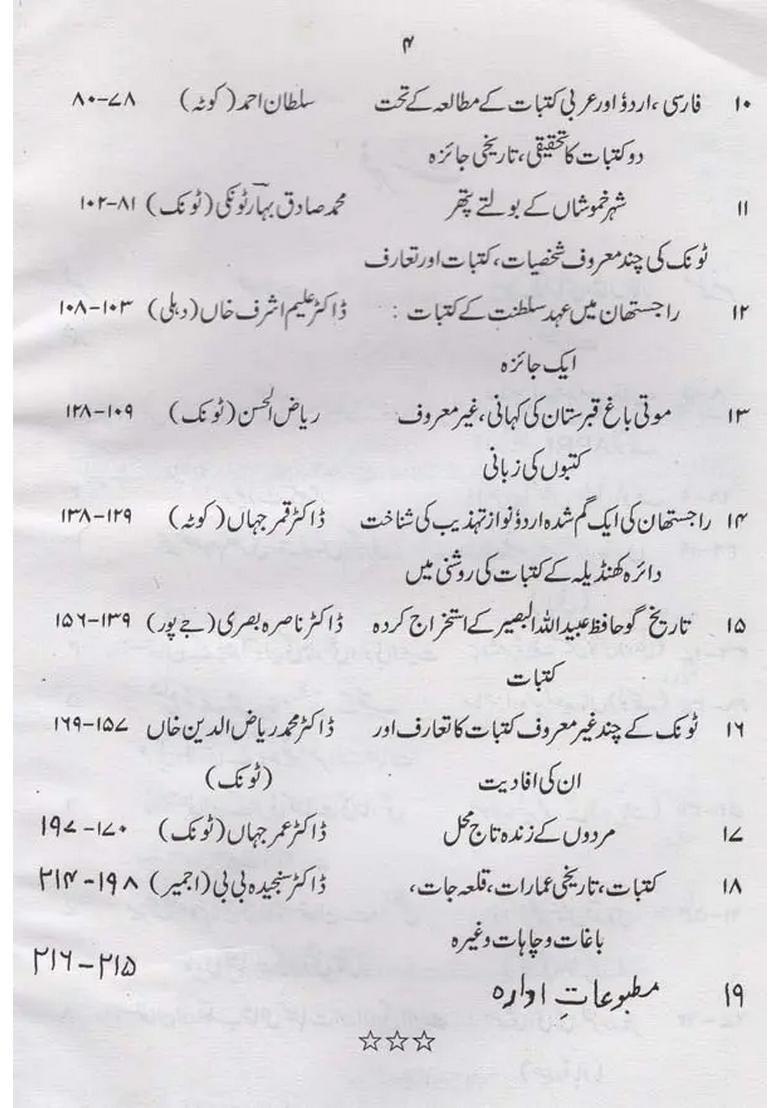 ۴
۱۰ فارسی ،اردؤ اور عربی کتبات کے مطالعہ کے تحت سلطان احمد (کوٹہ) ۷۸-۸۰
دو کتبات کا تحقیقی، تاریخی جائزہ
۱۱ شہر خموشاں کے بولتے پتھر محمد صادق بہار ٹونکی (ٹونک) ۸۱-۱۰۲
ٹونک کی چند معروف شخصیات، کتبات اور تعارف
۱۲ راجستھان میں عہد سلطنت کے کتبات : ڈاکٹر علیم اشرف خاں (دہلی) ۱۰۳-۱۰۸
ایک جائزہ
۱۳ موتی باغ قبرستان کی کہانی، غیر معروف ریاض الحسن (ٹونک) ۱۰۹-۱۲۸
کتبوں کی زبانی
۱۴ راجستھان کی ایک گم شدہ اردؤ نواز تہذیب کی شناخت ڈاکٹر قمر جہاں (کوٹہ) ۱۲۹-۱۳۸
دائرہ کھنڈیلہ کے کتبات کی روشنی میں
۱۵ تاریخ گو حافظ عبیداللہ البصیر کے استخراج کردہ ڈاکٹر ناصرہ بصری (جے پور) ۱۳۹-۱۵۶
کتبات
۱۶ ٹونک کے چند غیر معروف کتبات کا تعارف اور ڈاکٹر محمد ریاض الدین خاں ۱۵۷-۱۶۹
ان کی افادیت (ٹونک)
۱۷ مردوں کے زندہ تاج محل ڈاکٹر عمر جہاں (ٹونک) ۱۷۰-۱۹۷
۱۸ کتبات، تاریخی عمارات، قلعہ جات، ڈاکٹر سنجیدہ بی بی (اجمیر) ۱۹۸-۲۱۴
باغات و چاہات وغیرہ
۱۹ مطبوعاتِ ادارہ ۲۱۵-۲۱۶
☆☆☆